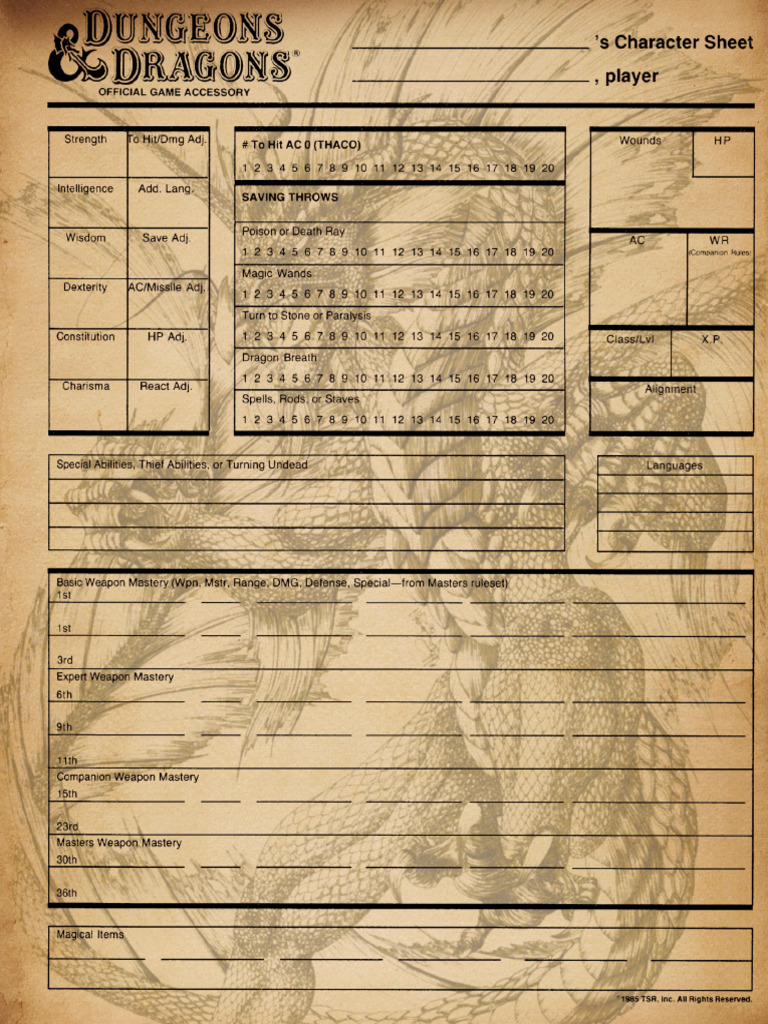 DUNGEONS
& DRAGONS®
OFFICIAL GAME ACCESSORY
's Character Sheet
, player
Strength
To Hit/Dmg Adj.
Intelligence
Add. Lang.
Wisdom
Save Adj.
Dexterity
AC/Missile Adj.
Constitution
HP Adj.
Charisma
React Adj.
# To Hit AC 0 (THACO)
1 2 3 4 5 6 7 8 9 10 11 12 13 14 15 16 17 18 19 20
SAVING THROWS
Poison or Death Ray
1 2 3 4 5 6 7 8 9 10 11 12 13 14 15 16 17 18 19 20
Magic Wands
1 2 3 4 5 6 7 8 9 10 11 12 13 14 15 16 17 18 19 20
Turn to Stone or Paralysis
1 2 3 4 5 6 7 8 9 10 11 12 13 14 15 16 17 18 19 20
Dragon Breath
1 2 3 4 5 6 7 8 9 10 11 12 13 14 15 16 17 18 19 20
Spells, Rods, or Staves
1 2 3 4 5 6 7 8 9 10 11 12 13 14 15 16 17 18 19 20
Wounds
HP
AC
WR
(Companion Rules)
Class/Lvl
X.P.
Alignment
Special Abilities, Thief Abilities, or Turning Undead
Languages
Basic Weapon Mastery (Wpn, Mstr, Range, DMG, Defense, Special—from Masters ruleset)
1st
1st
3rd
Expert Weapon Mastery
6th
9th
11th
Companion Weapon Mastery
15th
23rd
Masters Weapon Mastery
30th
36th
Magical Items
©1985 TSR, Inc. All Rights Reserved.